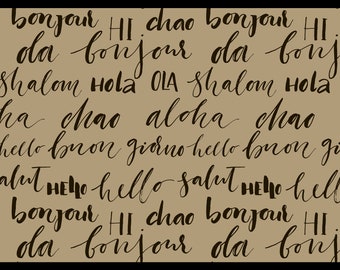 bonjour HI chao bonjour HI
da bonjour da bonjour
shalom HOLA OLA shalom HOLA
ha chao aloha chao
hello buon giorno hello buon giorno
salut HELLO hello salut HELLO hello
bonjour HI chao bonjour HI
da bonjour da bonjour